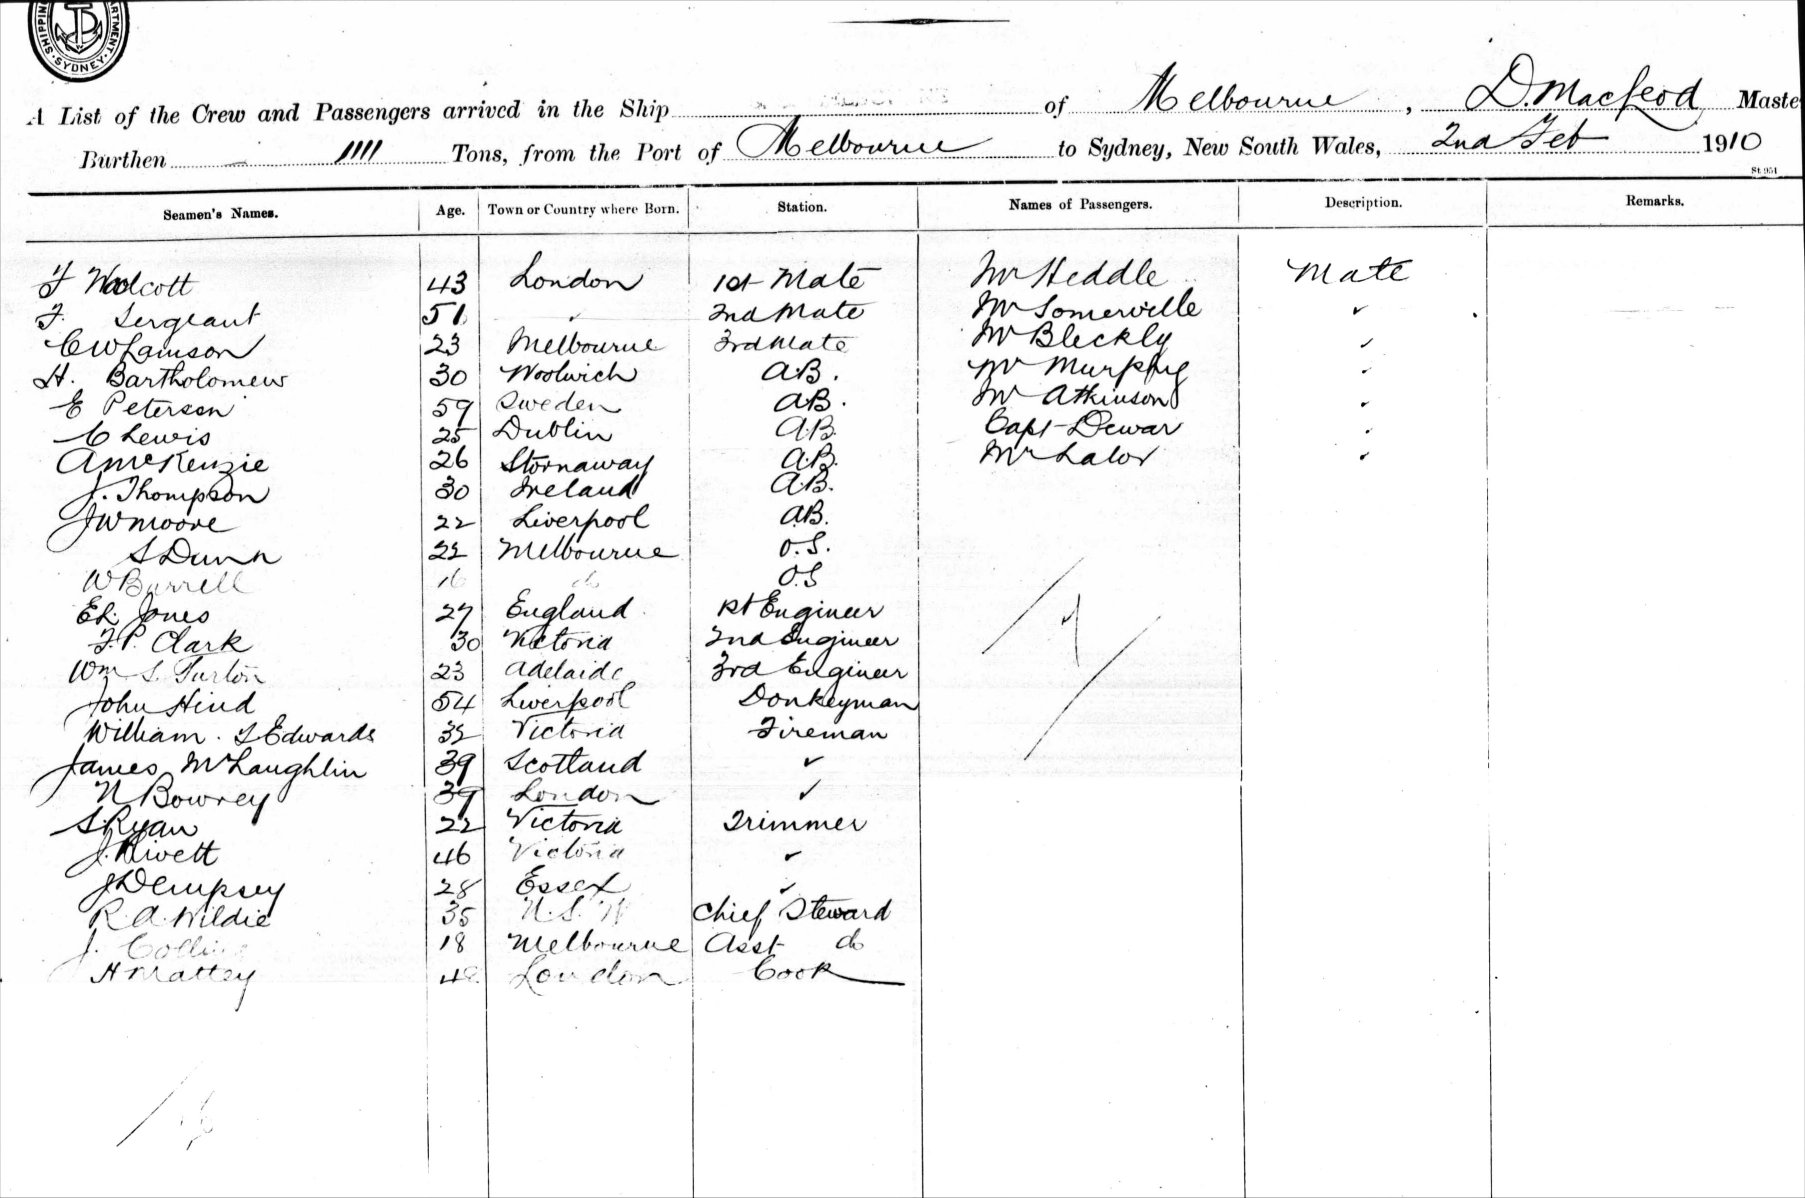 SHIPPING DEPARTMENT SYDNEY
A List of the Crew and Passengers arrived in the Ship of Melbourne, D. Macleod Maste
Burthen 1111 Tons, from the Port of Melbourne to Sydney, New South Wales, 2nd Feb 1910
St 951
Seamen's Names. Age. Town or Country where Born. Station. Names of Passengers. Description. Remarks.
F Woolcott 43 London 1st Mate Mr Heddle Mate
F. Sergeant 51 " 2nd Mate Mr Somerville "
C W Lamson 23 Melbourne 3rd Mate Mr Bleckly "
H. Bartholomew 30 Woolwich A.B. Mr "
E Peterson 59 Sweden A.B. Mr Atkinson "
C Lewis 25 Dublin A.B. Capt Dewar "
A McKenzie 26 Stornaway A.B. Mr Lalor "
J. Thompson 30 Ireland A.B.
J W Moore 22 Liverpool A.B.
S Dunn 22 Melbourne O.S.
W Burrell 16 do O.S
Ed. Jones 27 England 1st Engineer
F. P. Clark 30 Victoria 2nd Engineer
Wm S. Furton 23 Adelaide 3rd Engineer
John Hind 54 Liverpool Donkeyman
William. S Edwards 32 Victoria Fireman
James McLaughlin 39 Scotland "
N Bowrey 39 London "
S. Ryan 22 Victoria Trimmer
J. Rivett 46 Victoria "
J Dempsey 28 Essex "
R. A. Wildie 35 N. S. W Chief Steward
J. Collins 18 Melbourne Asst do
H Mattey 48 London Cook
7